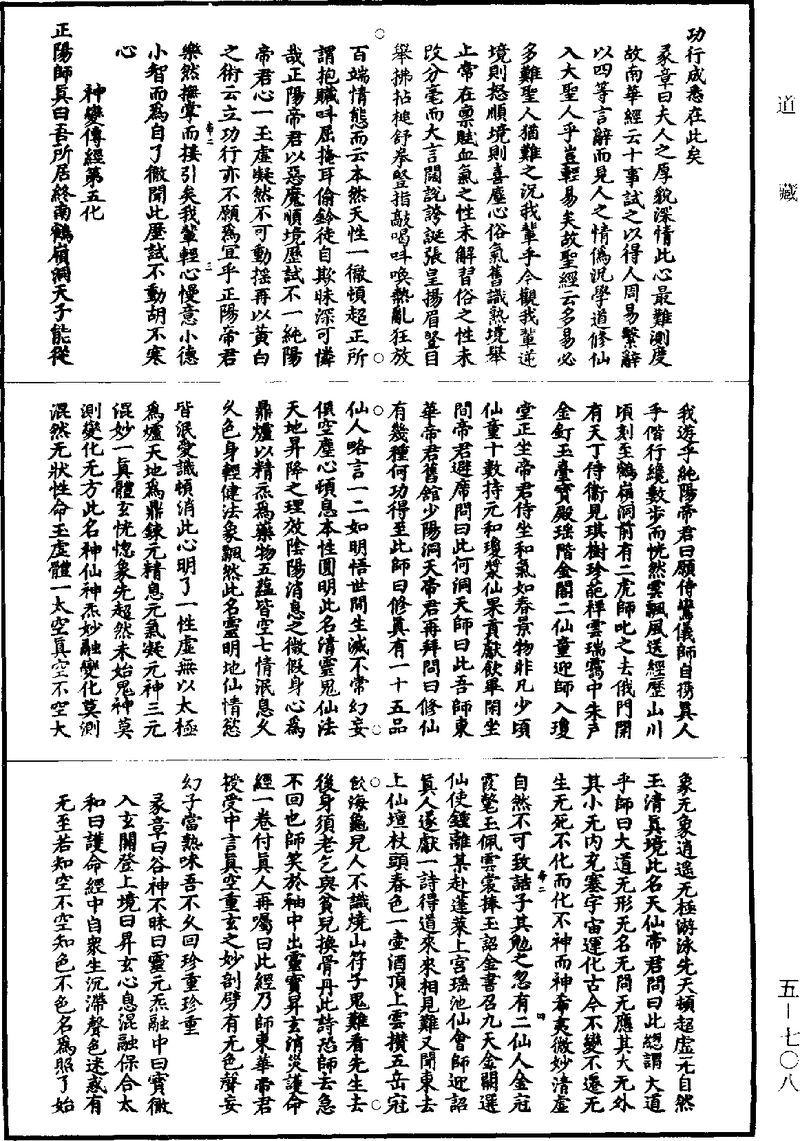 道藏
功行成悉在此矣
彖章曰夫人之厚貌深情此心最難測度
故南華經云十事試之以得人周易繫辭
以四等言辭而見人之情僞況學道修仙
入大聖人乎豈輕易矣故聖經云多易必
多難聖人猶難之況我輩乎今觀我輩逆
境則怒順境則喜塵心俗氣舊識熟境舉
止常在禀賦血氣之性未解習俗之性未
改分毫而大言闊說誇誕張皇揚眉豎目
舉拂拈槌舒拳豎指敲喝呌喚熱亂狂放
百端情態而云本然天性一徹頓超正所
謂抱贓呌屈掩耳偷鈴徒自欺昧深可憐
哉正陽帝君以惡魔順境歷試不一純陽
帝君心一玉虛凝然不可動摇再以黃白
之術云立功行亦不願爲宜乎正陽帝君
樂然撫掌而接引矣我輩輕心慢意小德
小智而爲自了徹聞此歷試不動胡不寒
心
神變傳經第五化
正陽師真曰吾所居終南鶴嶺洞天子能從
我遊乎純陽帝君曰願侍鸞儀師自携真人
手偕行纔數步而恍然雲飄風送經歷山川
頃刻至鶴嶺洞前有二虎師叱之去俄門開
有天丁侍衛見琪樹珍葩祥雲瑞靄中朱戶
金釘玉臺寶殿瑶階金閣二仙童迎師入瓊
堂正坐帝君侍坐和氣如春景物非凡少頃
仙童十數持元和瓊漿仙果貢獻飲畢閑坐
問帝君避席問曰此何洞天師曰此吾師東
華帝君舊館少陽洞天帝君再拜問曰修仙
有幾種何功得至此師曰修真有一十五品
仙人略言一二如明悟世間生滅不常幻妄
俱空塵心頓息本性圓明此名清靈鬼仙法
天地昇降之理效陰陽消息之微假身心爲
鼎爐以精炁爲藥物五藴皆空七情泯息久
久色身輕健法象飄然此名靈明地仙情慾
皆泯愛識頓消此心明了一性虛無以太極
爲爐天地爲鼎鍊元精息元氣凝元神三元
混妙一真體玄恍惚象先超然未始鬼神莫
測變化无方此名神仙神炁妙融變化莫測
混然无狀性命玉虛體一太空真空不空大
象无象逍遙无極游泳先天頓超虛元自然
玉清真境此名天仙帝君問曰此緫謂大道
乎師曰大道无形无名无問无應其大无外
其小无内充塞宇宙運化古今不變不遷无
生无死不化而化不神而神希夷微妙清虛
自然不可致詰子其勉之忽有二仙人金冠
霞帔玉佩雲裳捧玉詔金書召九天金闕選
仙使鍾離某赴蓬萊上宫瑶池仙會師迎詔
真人遂獻一詩得道來來相見難又聞東去
上仙壇杖頭春色一壺酒頂上雲攢五岳冠
飲海龜兒人不識燒山符子鬼難看先生去
後身須老乞與貧兒換骨丹此詩恐師去急
不回也師笑於袖中出靈寶昇玄消災護命
經一卷付真人再囑曰此經乃師東華帝君
授受中言真空重玄之妙剖劈有无色聲妄
幻子當熟味吾不久回珍重珍重
彖章曰谷神不昧曰靈元炁融中曰寶徹
入玄關登上境曰昇玄心息混融保合太
和曰護命經中自衆生沉滯聲色迷惑有
无至若知空不空知色不色名爲照了始
五一七〇八